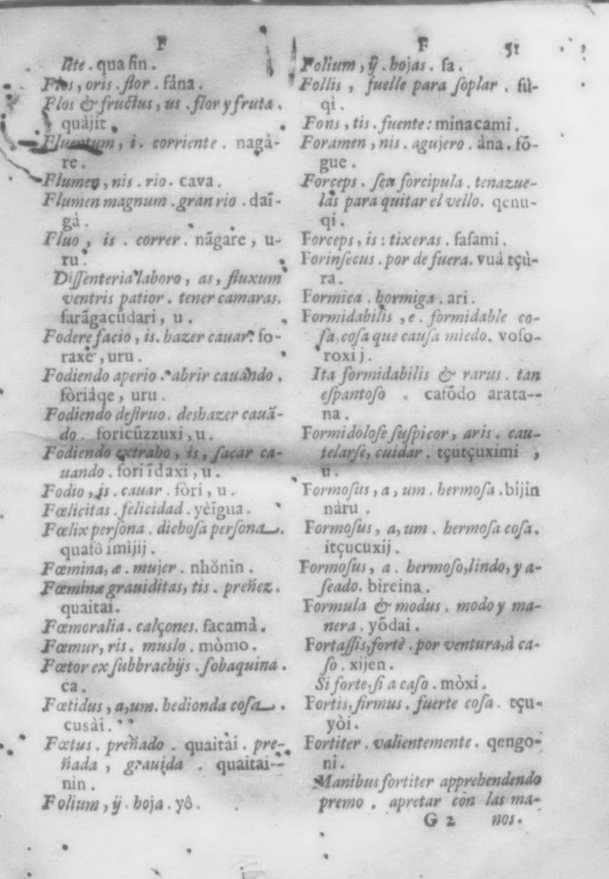 F
ſite . qua ſin .
Flos, oris . flor . fána .
Flos & fructus, us . flor y fruta .
quàjit .
Fluentum, i . corriente . nagà-
re .
Flumen, nis . rio . cava .
Flumen magnum . gran rio . daĩ-
gà .
Fluo, is . correr . nãgare, u-
ru .
Diſſenteria laboro, as, fluxum
ventris patior . tener camaras .
farãgacũdari, u .
Fodere facio, is . hazer cauar . fo-
raxè, uru .
Fodiendo aperio . abrir cauando .
fòriáqe, uru .
Fodiendo deſtruo . deshazer cauã-
do . foricũzzuxi, u .
Fodiendo extraho, is, ſacar ca-
uando . fori ĩdaxi, u .
Fodio, is . cauar . fòri, u .
Fœlicitas . felicidad . yèĩgua .
Fœlix perſona . dichoſa perſona .
quafô imijij .
Fœmina, æ . mujer . nhõnin .
Fœminæ grauiditas, tis . preñez .
quaitai .
Fœmoralia . calçones . facamà .
Fœmur, ris . muslo . mòmo .
Fœtor ex ſubbrachijs . ſobaquina .
ca .
Fœtidus, a, um . hedionda coſa .
cusài .
Fœtus . preñado . quaitài . pre-
ñada, grauida . quaitai--
nin .
Folium, ÿ . hoja . yô .
F 51
Folium, ÿ . hojas . fa .
Follis, fuelle para ſoplar . fù-
qi .
Fons, tis . fuente : minacami .
Foramen, nis . agujero . àna . fõ-
gue .
Forceps . ſeu forcipula . tenazue-
las para quitar el vello . qenu-
qi .
Forceps, is : tixeras . faſami .
Forinſecus . por de fuera . vuá tçù-
ra .
Formica . hormiga . ari .
Formidabilis, e . formidable co-
ſa, coſa que cauſa miedo . voſo-
roxij .
Ita formidabilis & rarus . tan
eſpantoſo . caſõdo arata--
na .
Formidoloſe ſuſpicor, aris . cau-
telarſe, cuidar . tçutçuximi ,
u .
Formoſus, a, um . hermoſa . bijin
nàru .
Formoſus, a, um . hermoſa coſa .
itçucuxij .
Formoſus, a . hermoſo, lindo, y a-
ſeado . bireina .
Formula & modus . modo y ma-
nera . yõdai .
Fortaſſis, fortè . por ventura, à ca-
ſo . xijen .
Si forte, ſi a caſo . mòxi .
Fortis, firmus . fuerte coſa . tçu-
yòi .
Fortiter . valientemente . qengo-
ni .
Manibus fortiter apprehendendo
premo . apretar con las ma-
G 2 nos .